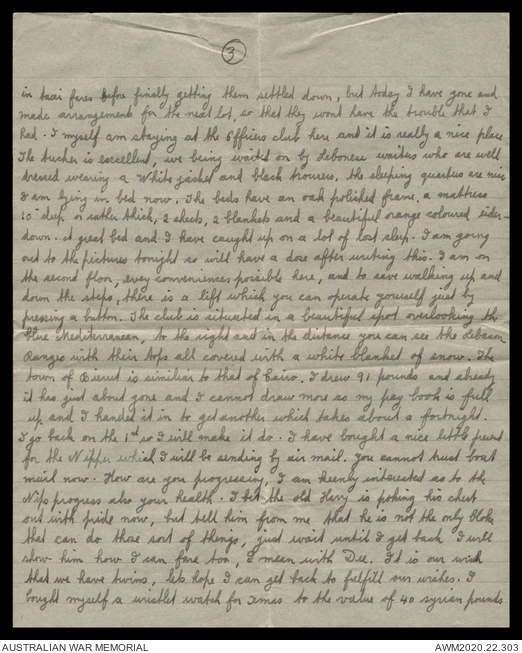 3
in taxi fares before finally getting them settled down, but today I have gone and
made arrangements for the next lot, so that they wont have the trouble that I
had. I myself am staying at the Officers club here and it is really a nice place
The tucker is excellent, we being waited on by Lebonese waiters who are well
dressed wearing a White jacket and black trousers, the sleeping quarters are nice
I am lying in bed now. The beds have an oak polished frame, a mattress
10" deep or rather thick, 2 sheets, 2 blankets and a beautiful orange coloured eider-
down. A great bed and I have caught up on a lot of lost sleep. I am going
out to the pictures tonight so will have a dose after writing this. I am on
the second floor, every conveniences possible here, and to save walking up and
down the steps, there is a lift which you can operate yourself just by
pressing a button. The club is situated in a beautiful spot overlooking the
blue Mediterranean, to the right and in the distance you can see the Lebanon
Ranges with their tops all covered with a white blanket of snow. The
town of Bierut is similiar to that of Cairo. I drew 91 pounds and already
it has just about gone and I cannot draw more as my pay book is full
up and I handed it in to get another which takes about a fortnight.
I go back on the 1st so I will make it do. I have bought a nice little present
for the Nipper which I will be sending by air mail. You cannot trust boat
mail now. How are you progressing, I am keenly interested as to the
Nips progress also your health. I bet the old Harry is poking his chest
out with pride now, but tell him from me, that he is not the only bloke
that can do those sort of things, just wait until I get back I will
show him how I can fare too, I mean with Dee. It is our wish
that we have twins, lets hope I can get back to fulfill our wishes. I
bought myself a wristlet watch for Xmas to the value of 40 syrian pounds
AUSTRALIAN WAR MEMORIAL
AWM2020.22.303